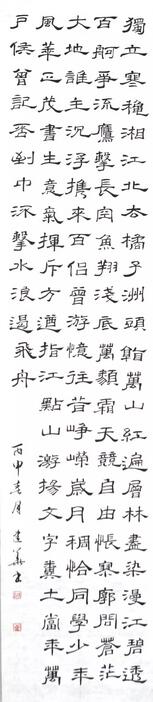 獨立寒穐湘江北去橘子洲頭看萬山紅遍層林盡染漫江碧透
百舸爭流鷹擊長空魚翔淺底萬類霜天競自由悵寥廓問蒼茫
大地誰主沉浮攜來百侶曾游憶往昔崢嶸歲月稠恰同學少年
風華正茂書生意氣揮斥方遒指江點山激揚文字糞土當年萬
戶侯曾記否到中流擊水浪遏飛舟
丙申春月 建華書